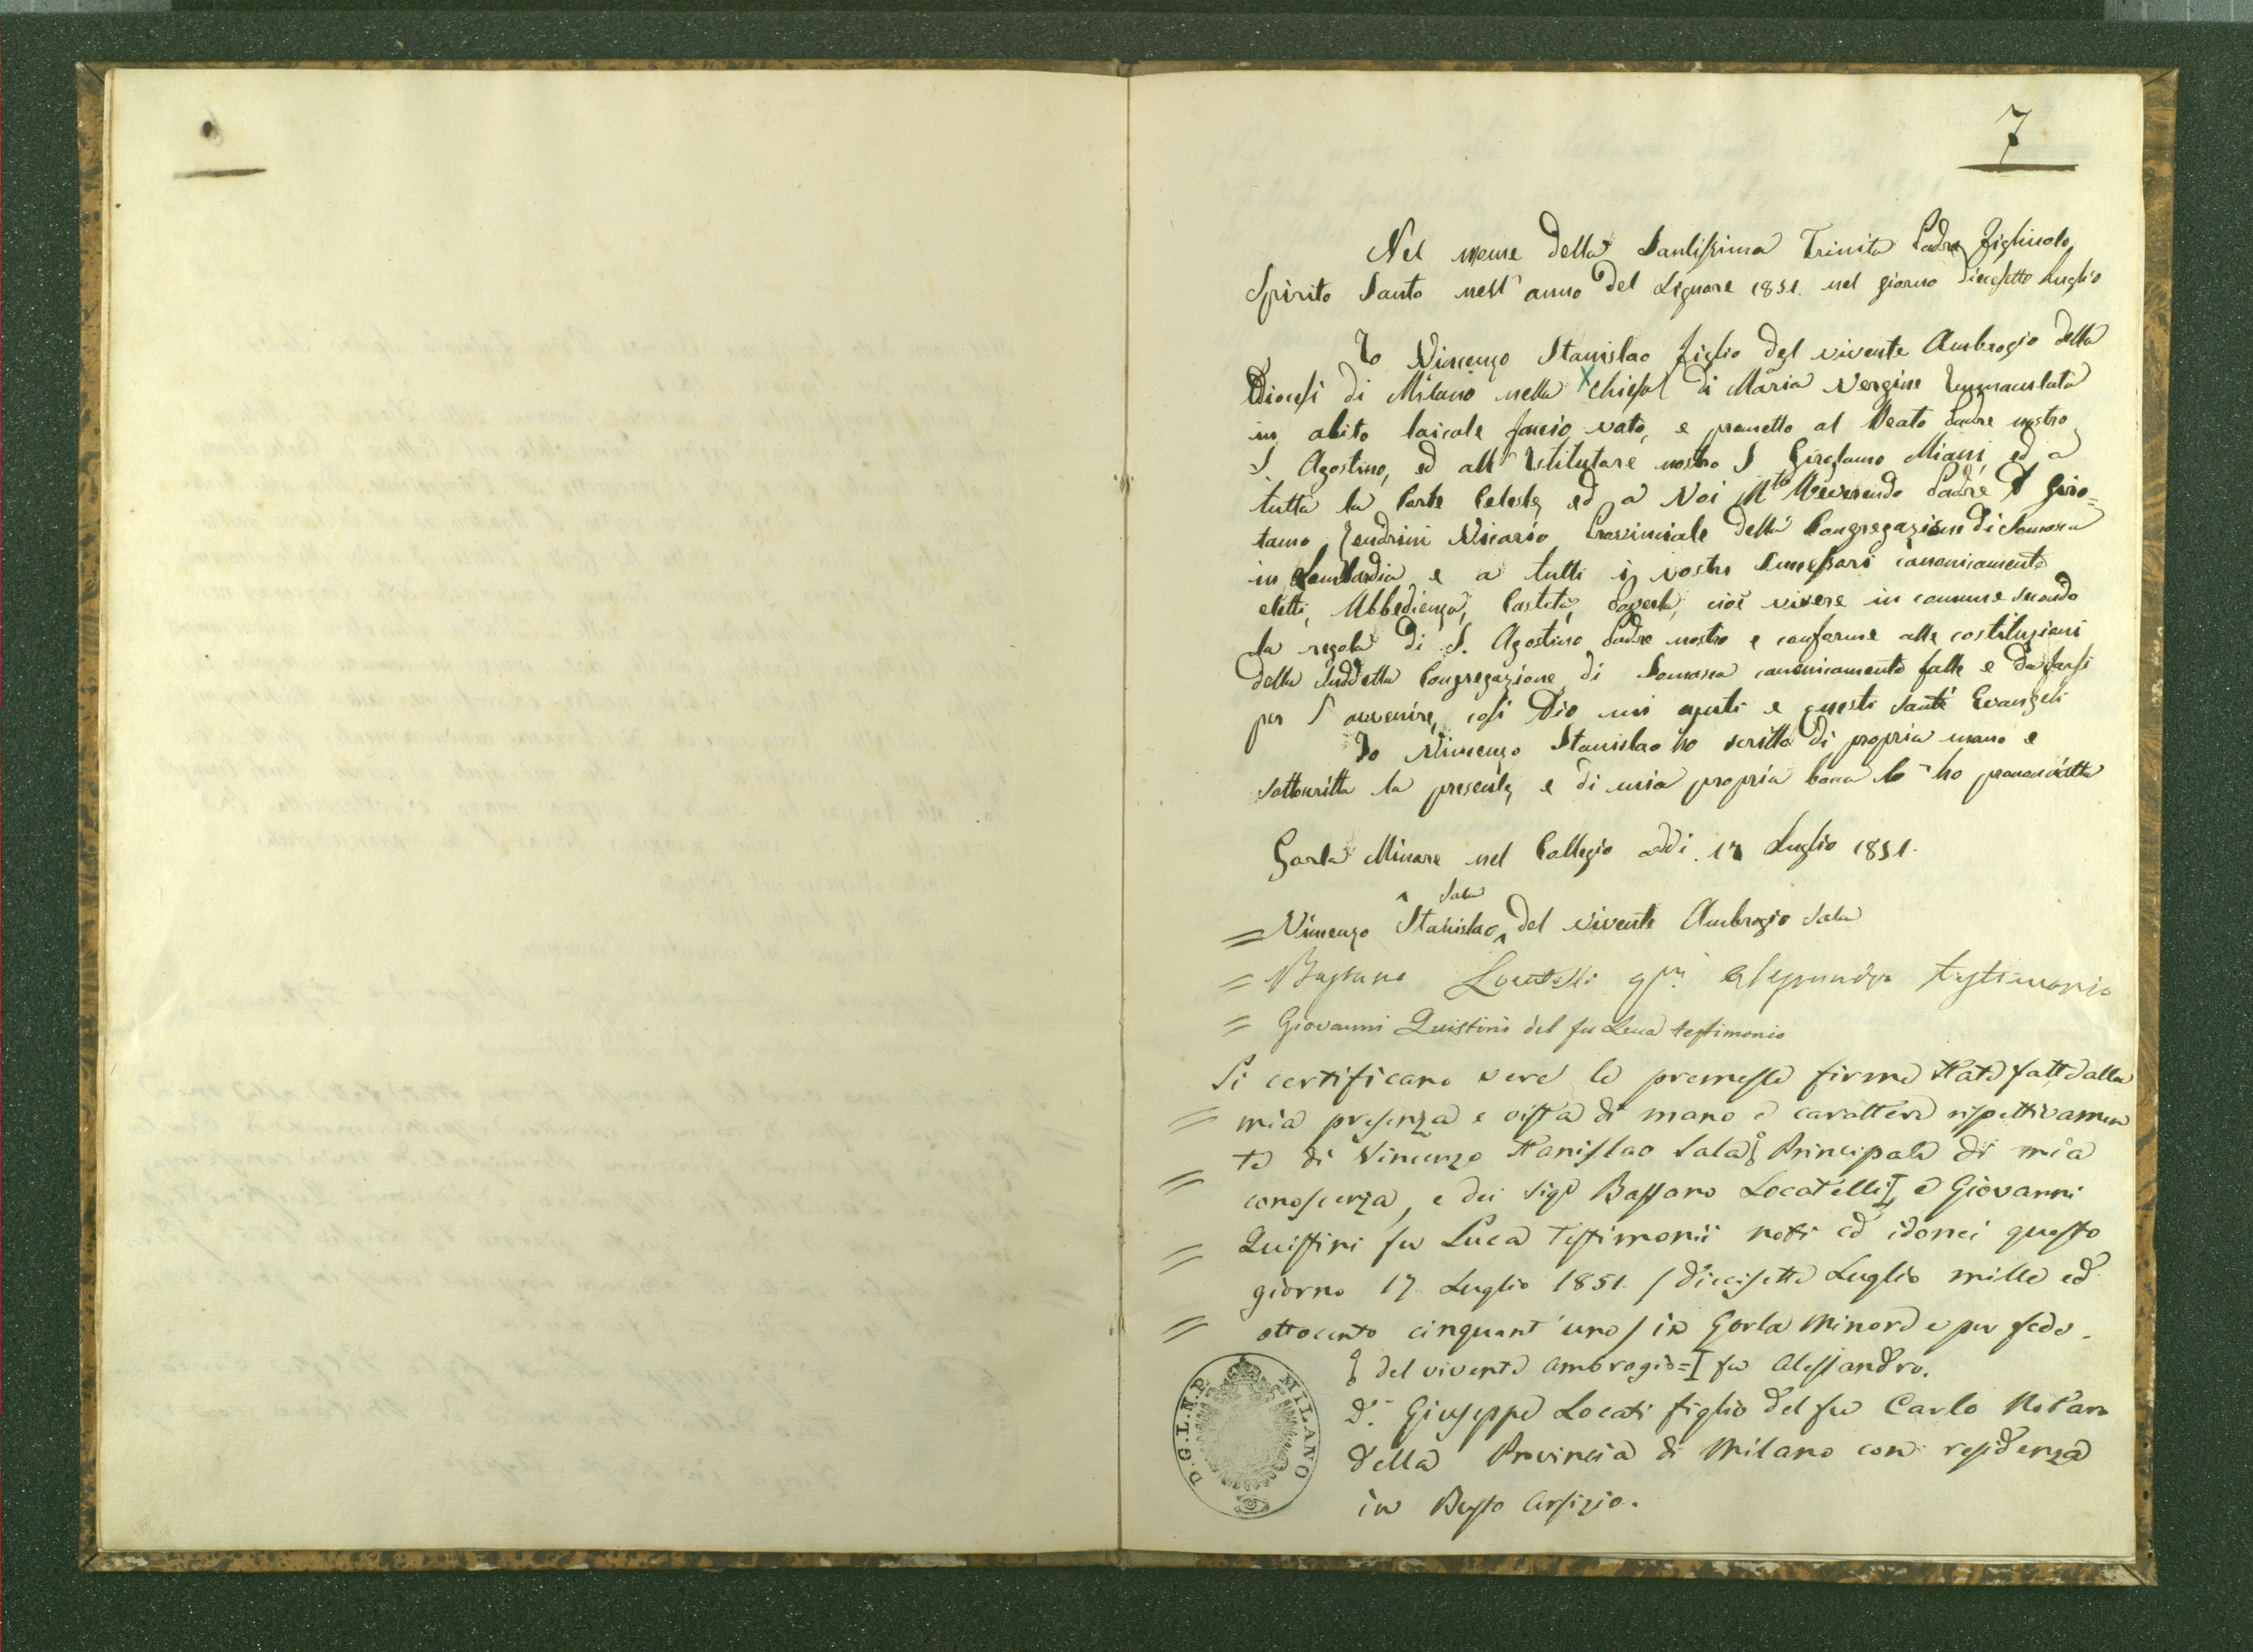 7
Nel nome della Santissima Trinità Padre Figliuolo
Spirito Santo nell' anno del Signore 1851. nel giorno diecisette Luglio
Io Vincenzo Stanislao figlio del vivente Ambrogio della
Diocesi di Milano nella X Chiesa di Maria Vergine Immacolata
in abito laicale faccio voto, e prometto al Beato Padre nostro
S. Agostino, ed all' Istitutore nostro S Girolamo Miani, ed a
tutta la Corte Celeste, ed a Voi M.to Reverendo Padre D Giro=
lamo Zendrini Vicario Provinciale della Congregazione di Somasca
in Lombardia e a tutti i vostri Successori canonicamente
eletti, Ubbedienza, Castità, Povertà, cioè vivere in comune secondo
la regola di S. Agostino Padre nostro e conforme alle costituzioni
della suddetta Congregazione di Somasca canonicamente fatte e da farsi
per l' avvenire, così Dio mi ajuti e questi Santi Evangeli
Io Vincenzo Stanislao ho scritto di propria mano e
sottoscritta la presente, e di mia propria bocca la ho pronunciatta
Gorla Minore nel Collegio addi. 17 Luglio 1851.
^ Sala
= Vincenzo Stanislao ^ del vivente Ambrogio Sala
= Bassano Locatelli qm. Alessandro testimonio
= Giovanni Quistini del fu Luca testimonio
Si certificano vere le premesse firme State fatte alla
= mia presenza e vista di mano e carattere rispettivamen
te di Vincenzo Stanislao Sala Principale di mia
= conoscenza, e dei Sigr Bassano Locatelli I, e Giovanni
Quistini fu Luca Testimonii noti ed idonei questo
= giorno 17 Luglio 1851. / diecisette Luglio mille ed
= ottocento cinquant' uno / in Gorla Minore e per fede.
del vivente Ambrogio = I fu Alessandro.
Dr. Giuseppe Locati figlio del fu Carlo Notaro
della Provincia di Milano con residenza
in Busto Arsizio.
D.G.L.N.P. MILANO